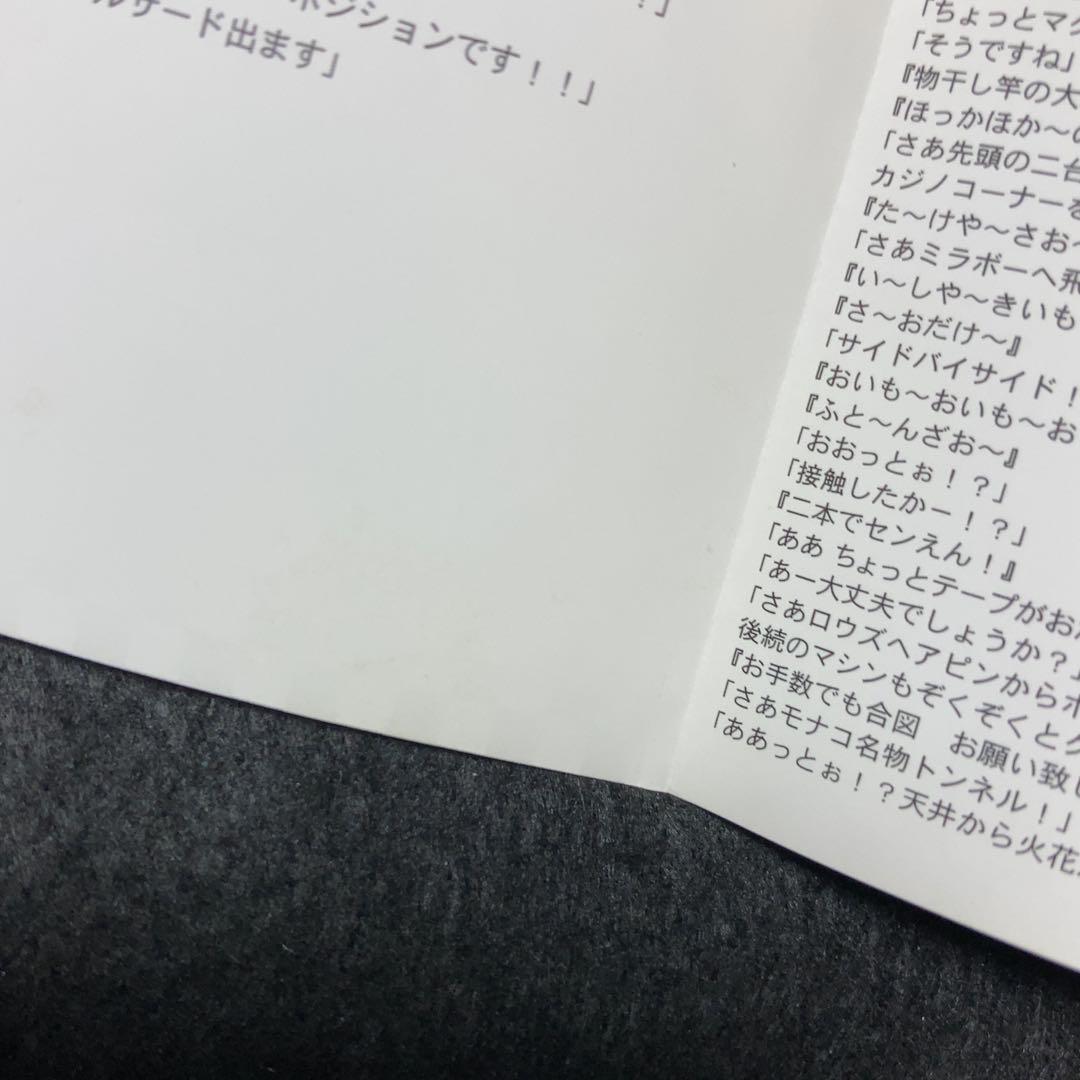 ！？」
ポジションです！！」
ルザード出ます」
「ちょっとマク
「そうですね」
『物干し竿の大
『ほっかほか〜の
「さあ先頭の二台
カジノコーナーを
『た〜けや〜さお〜
「さあミラボーへ飛
『い〜しや〜きいも
『さ〜おだけ〜』
「サイドバイサイド！
『おいも〜おいも〜お
『ふと〜んざお〜』
「おおっとぉ！？」
「接触したかー！？」
『二本でセンえん！』
「ああ ちょっとテープがお
「あー大丈夫でしょうか？
「さあロウズヘアピンからポ
後続のマシンもぞくぞくと
『お手数でも合図　お願い致し
「さあモナコ名物トンネル！」
「ああっとぉ！？天井から火花